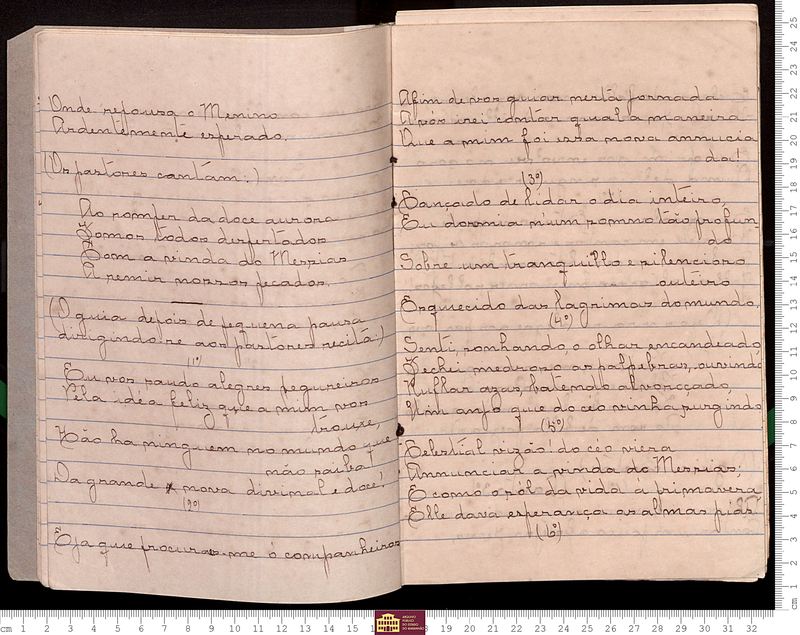 Onde repousa o Menino
Ardentemente esperado.
(Os pastores cantam:)
Ao romper da doce aurora
Somos todos despertados
Com a vinda do Messias
A remir nossos pecados.
(O guia depois de pequena pausa
dirigindo-se aos pastores recita:)
(1º)
Eu vos saudo alegres pegureiros
Pela idéa feliz que a mim vos
trouxe,
Não ha ninguem no mundo que
não saiba
Da grande nova divinal e doce!
(2º)
Eja que procuraes-me ó companheiros
Afim de vos guiar nesta jornada
A vos irei contar qual a maneira
Que a mim foi essa nova annucia
da!
(3º)
Cançado de lidar o dia inteiro,
Eu dormia n'um somno tão profun
do
Sobre um tranquillo e silencioso
outeiro
Esquecido das lagrimas do mundo.
(4º)
Senti, sonhando, o olhar encandeado
Fechei medroso as palpebras, ouvindo
Ruflar azas, batendo alvoroçado,
Um anjo que do ceo vinha surgindo
(5º)
Celestial vizão do céo viera
Annunciar a vinda do Messias:
E como o sól da vida á primavera
Elle dava esperança as almas pias
(6º)
cm 1 2 3 4 5 6 7 8 9 10 11 12 13 14 15 19 20 21 22 23 24 25 26 27 28 29 30 31 32
ARQUIVO
PÚBLICO
DO ESTADO
DO MARANHÃO
cm 1 2 3 4 5 6 7 8 9 10 11 12 13 14 15 16 17 18 19 20 21 22 23 24 25